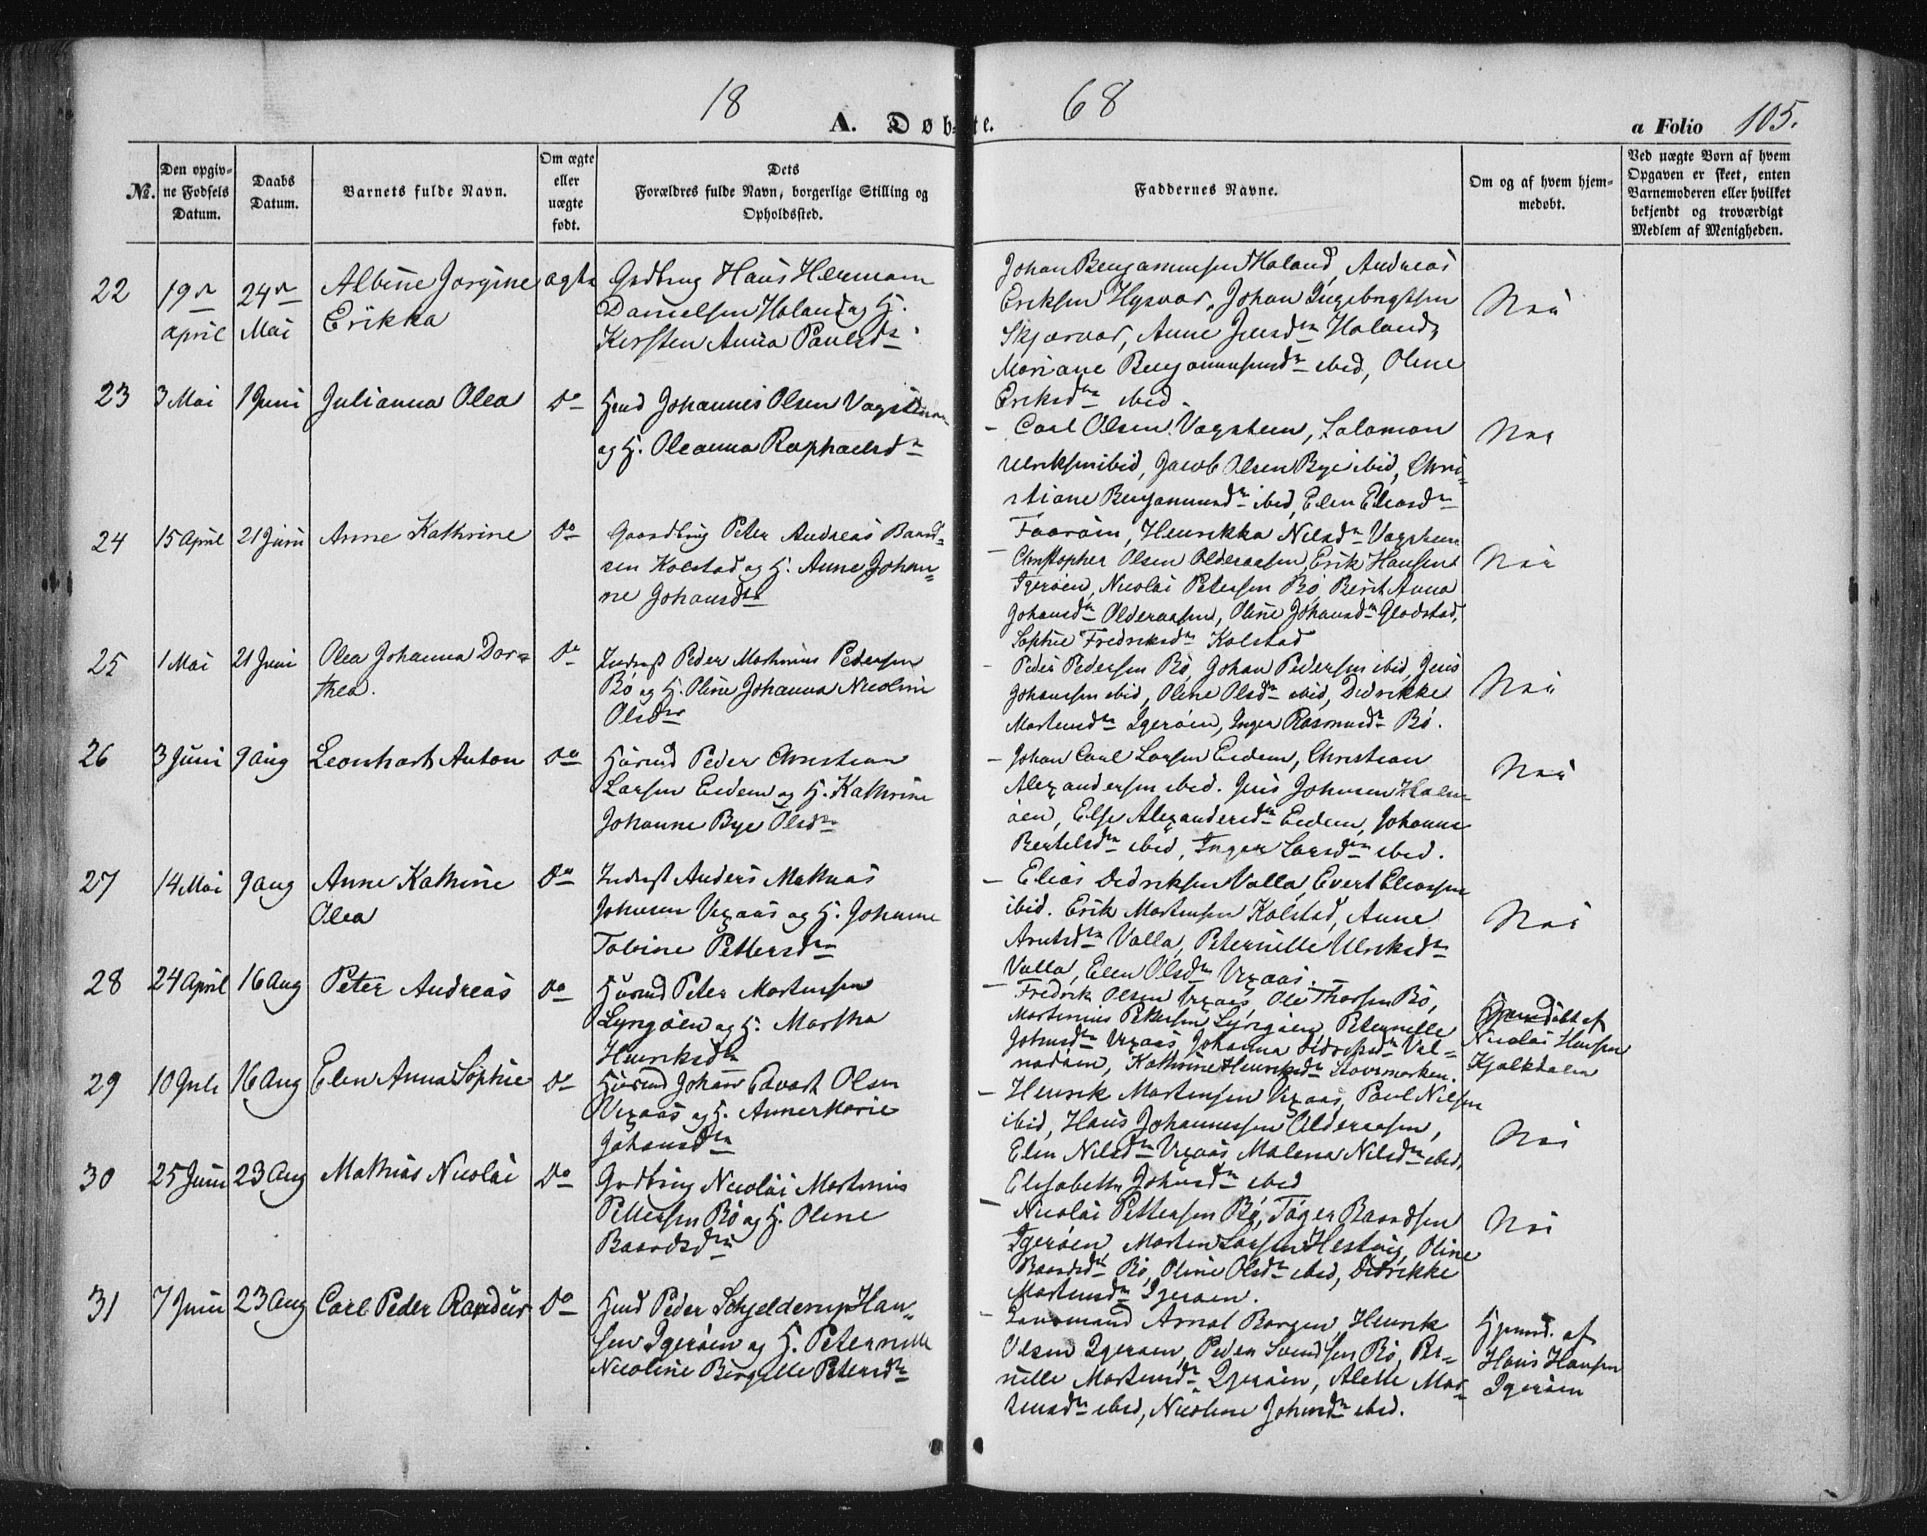 18 68
A. Døbte.
a Folio 105.
№.
Den opgivne Fødsels Datum.
Daabs Datum.
Barnets fulde Navn.
Om ægte eller uægte født.
Dets Forældres fulde Navn, borgerlige Stilling og Opholdssted.
Faddernes Navne.
Om og af hvem hjemmedøbt.
Ved uægte Børn af hvem Opgaven er skeet, enten Barnemoderen eller hvilket bekjendt og troværdigt Medlem af Menigheden.
22
19de April
24de Mai
Albine Jørgine
Erikka
ægte
Grdbrug Hans Hermann
Danielsen Holand og H.
Kirsten Anna Paulsdr
Johan Benjaminsen Holand, Andreas
Eriksen Hysvær, Johan Ingebrigtsen
Skjærvær, Anne Jensdtr Holand,
Mariane Benjaminsensdtr ibid, Oline
Eriksdtr ibid.
Nei
23
3 Mai
1 Juni
Julianna Olea
Do
Hmd Johannes Olsen Vagsteen
og H. Oleanna Raphaelsdr
- Carl Olsen Vagsteen, Salamon
Ulriksen ibid, Jacob Olsen Bye ibid, Chri-
stiane Benjaminsdr ibid, Elen Eliasdr
Faarøin, Henrikka Nilsdr Vagsteen
Nei
24
15 April
21 Juni
Anne Kathrine
Do
Gaardbrug Peter Andreas Baard-
sen Kolstad og H. Anne Johan-
ne Johansdtr
- Christopher Olsen Olderaasen, Erik Hansen
Igerøen, Nicolai Petersen Bø, Berit Anna
Johansdtr Olderaasen, Oline Johansdr Glodstad,
Sophie Fredriksdr Kolstad
Nei
25
1 Mai
21 Juni
Olea Johanna Dor-
thea.
Do
Inderst Peder Martinius Pedersen
Bø og H. Oline Johanna Nicoline
Olsdtr
- Peder Pedersen Bø, Johan Pedersen ibid, Jens
Johansen ibid, Oline Olsdr ibid, Didrikke
Mortensdtr Igerøen, Inger Rasmusdr Bø.
Nei
26
3 Juni
9 Aug
Leonhart Anton
Do
Huusmd Peder Christian
Larsen Eidem og H. Kathrine
Johanne Bye Olsdtr
- Johan Carl Larsen Eidem, Christian
Alexandersen ibid. Jens Johnsen Holm-
øen, Else Alexandersdtr Eidem, Johanne
Bertelsdtr ibid, Inger Larsdtr ibid.
Nei
27
14 Mai
9 Aug
Anne Kathrine
Olea
Do
Inderst Anders Mathias
Johnsen Vexaas og H. Johanne
Tobine Pettersdtr
- Elias Didriksen Valla, Evert Eliassen
ibid. Erik Mortensen Kolstad, Anne
Arntsdtr Valla, Peternille Ulriksdtr
Valla, Elen Olsdtr Vexaas.
Nei
28
24 April
16 Aug
Peter Andreas
Do
Huusmd Peter Martinsen
Lyngøen og H. Martha
Henriksdtr
- Fredrik Olsen Vexaas, Ole Thorsen Bø,
Martinius Pettersen Lyngøen, Peternille
Johnsdtr Vexaas, Johanna Didriksdtr Val-
nadøen, Kathrine Henriksdr Stavsmarken.
Hjemdøbt af
Nicolai Hansen
Kjalkdalen
29
10 Juli
16 Aug
Elen Anna Sophie
Do
Huusmd Johan Edvart Olsen
Vexaas og H. Anne Marie
Johansdtr
- Henrik Mortensen Vexaas, Paul Nilsen
ibid, Hans Johannessen Olderaasen,
Elen Nilsdr Vexaas Malena Nilsdtr ibid,
Elisabeth Johnsdtr ibid
Nei
30
25 Juni
23 Aug
Mathias Nicolai
Do
Grdbrug Nicolai Martinius
Pettersen Bø og H. Oline
Baardsdtr
- Nicolai Pettersen Bø, Tøger Baardsen
Igerøen, Morten Larsen Hestvig, Oline
Baardsdr Bø, Oline Olsdr ibid, Didrikke
Mortensdr Igerøen.
Nei
31
7 Juni
23 Aug
Carl Peder Randus
Do
Hmd Peder Schjelderup Han-
sen Igerøen og H. Peternille
Nicoline Birgitte Petersdtr
- Lensmand Arnat Borgen, Henrik
Olsen Igerøen, Peder Svendsen Bø, Per-
nille Mortensdr Igerøen, Alette Mor-
tensdtr ibid, Nicoline Johnsdtr ibid.
Hjemd. af
Hans Hansen
Igerøen